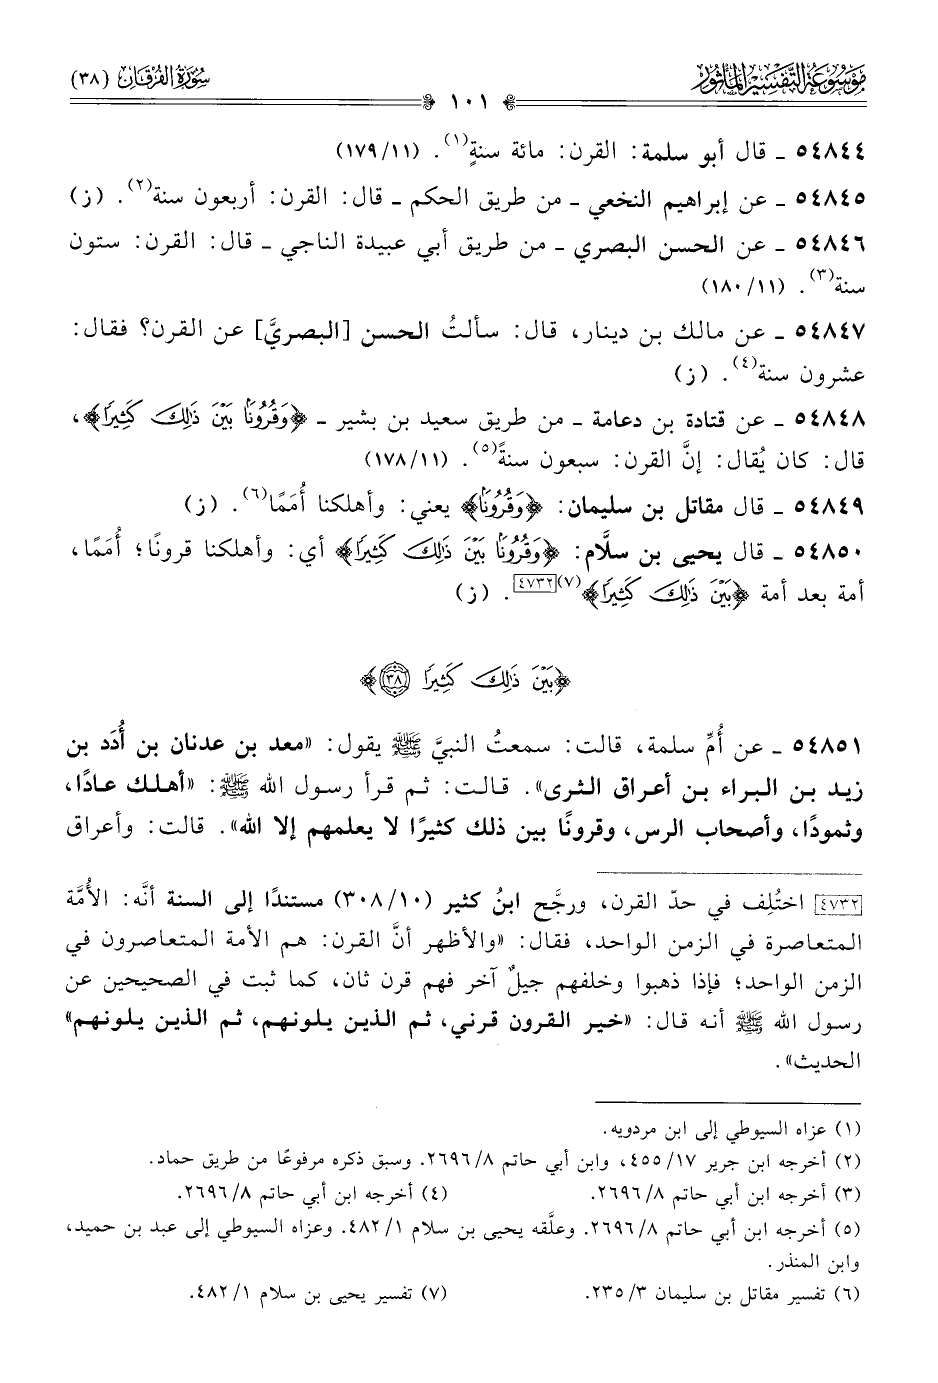 موسوعة التفسير المأثور
سورة الفرقان (٣٨)
١٠١
٥٤٨٤٤ ـ قال أبو سلمة: القرن: مائة سنةٍ(١). (١١/١٧٩)
٥٤٨٤٥ ـ عن إبراهيم النخعي ـ من طريق الحكم ـ قال: القرن: أربعون سنة(٢). (ز)
٥٤٨٤٦ ـ عن الحسن البصري ـ من طريق أبي عبيدة الناجي ـ قال: القرن: ستون
سنة(٣). (١١/١٨٠)
٥٤٨٤٧ ـ عن مالك بن دينار، قال: سألتُ الحسن [البصريَّ] عن القرن؟ فقال:
عشرون سنة(٤). (ز)
٥٤٨٤٨ ـ عن قتادة بن دعامة ـ من طريق سعيد بن بشير ـ ﴿وَقُرُونًا بَيْنَ ذَٰلِكَ كَثِيرًا﴾،
قال: كان يُقال: إنَّ القرن: سبعون سنةً(٥). (١١/١٧٨)
٥٤٨٤٩ ـ قال مقاتل بن سليمان: ﴿وَقُرُونًا﴾ يعني: وأهلكنا أُمَمًا(٦). (ز)
٥٤٨٥٠ ـ قال يحيى بن سلَّام: ﴿وَقُرُونًا بَيْنَ ذَٰلِكَ كَثِيرًا﴾ أي: وأهلكنا قرونًا؛ أُمَمًا،
أمة بعد أمة ﴿بَيْنَ ذَٰلِكَ كَثِيرًا﴾(٧)[٤٧٣٢]. (ز)
﴿بَيْنَ ذَٰلِكَ كَثِيرًا ٣٨﴾
٥٤٨٥١ ـ عن أُمِّ سلمة، قالت: سمعتُ النبيَّ ﷺ يقول: «معد بن عدنان بن أُدَد بن
زيد بن البراء بن أعراق الثرى». قالت: ثم قرأ رسول الله ﷺ: «أهلك عادًا،
وثمودًا، وأصحاب الرس، وقرونًا بين ذلك كثيرًا لا يعلمهم إلا الله». قالت: وأعراق
[٤٧٣٢] اختُلِف في حدّ القرن، ورجَّح ابنُ كثير (١٠/٣٠٨) مستندًا إلى السنة أنَّه: الأُمَّة
المتعاصرة في الزمن الواحد، فقال: «والأظهر أنَّ القرن: هم الأمة المتعاصرون في
الزمن الواحد؛ فإذا ذهبوا وخلفهم جيلٌ آخر فهم قرن ثان، كما ثبت في الصحيحين عن
رسول الله ﷺ أنه قال: «خير القرون قرني، ثم الذين يلونهم، ثم الذين يلونهم»
الحديث».
(١) عزاه السيوطي إلى ابن مردويه.
(٢) أخرجه ابن جرير ١٧/٤٥٥، وابن أبي حاتم ٨/٢٦٩٦. وسبق ذكره مرفوعًا من طريق حماد.
(٣) أخرجه ابن أبي حاتم ٨/٢٦٩٦. (٤) أخرجه ابن أبي حاتم ٨/٢٦٩٦.
(٥) أخرجه ابن أبي حاتم ٨/٢٦٩٦. وعلَّقه يحيى بن سلام ١/٤٨٢. وعزاه السيوطي إلى عبد بن حميد،
وابن المنذر.
(٦) تفسير مقاتل بن سليمان ٣/٢٣٥. (٧) تفسير يحيى بن سلام ١/٤٨٢.